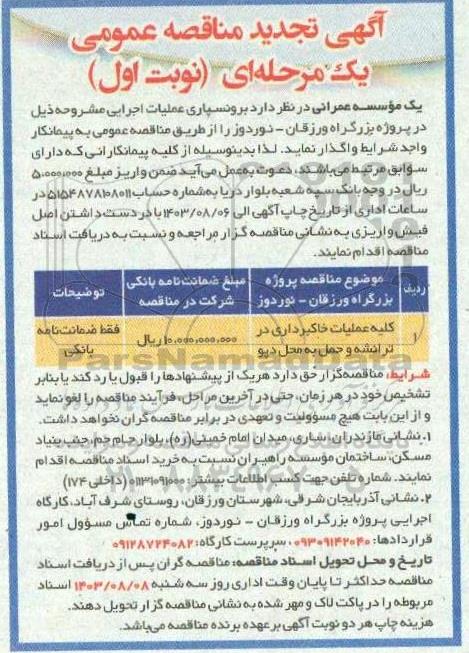 آگهی تجدید مناقصه عمومی
یک مرحله‌ای (نوبت اول)
یک مؤسسه عمرانی در نظر دارد برونسپاری عملیات اجرایی مشروحه ذیل
در پروژه بزرگراه ورزقان - نوردوز را از طریق مناقصه عمومی به پیمانکار
واجد شرایط واگذار نماید. لذا بدینوسیله از کلیه پیمانکارانی که دارای
سوابق مرتبط می‌باشند، دعوت به عمل می‌آید ضمن واریز مبلغ ۵،۰۰۰،۰۰۰
ریال در وجه بانک سپه شعبه بلوار دریا به شماره حساب ۵۱۵۴۸۷۸۱۰۸۰۱۱ در
ساعات اداری از تاریخ چاپ آگهی الی ۱۴۰۳/۰۸/۰۶ با در دست داشتن اصل
فیش واریزی به نشانی مناقصه گزار مراجعه و نسبت به دریافت اسناد
مناقصه اقدام نمایند.
ردیف موضوع مناقصه پروژه بزرگراه ورزقان - نوردوز مبلغ ضمانت‌نامه بانکی شرکت در مناقصه توضیحات
۱ کلیه عملیات خاکبرداری در ترانشه و حمل به محل دپو ۱۰،۰۰۰،۰۰۰،۰۰۰ ریال فقط ضمانت‌نامه بانکی
شرایط: مناقصه‌گزار حق دارد هریک از پیشنهادها را قبول یا رد کند یا بنابر
تشخیص خود در هر زمان، حتی در آخرین مراحل، فرآیند مناقصه را لغو نماید
و از این بابت هیچ مسؤولیت و تعهدی در برابر مناقصه گران نخواهد داشت.
۱. نشانی مازندران، ساری، میدان امام خمینی(ره)، بلوار جام جم، جنب بنیاد
مسکن، ساختمان مؤسسه راهیران نسبت به خرید اسناد مناقصه اقدام
نمایند. شماره تلفن جهت کسب اطلاعات بیشتر: ۰۱۱۳۱۰۹۱۰۰۰ (داخلی ۱۷۴)
۲. نشانی آذربایجان شرقی، شهرستان ورزقان، روستای شرف آباد، کارگاه
اجرایی پروژه بزرگراه ورزقان - نوردوز، شماره تماس مسؤول امور
قراردادها: ۰۹۳۰۹۱۴۲۰۴۰، سرپرست کارگاه: ۰۹۱۲۸۷۲۴۰۸۲
تاریخ و محل تحویل اسناد مناقصه: مناقصه گران پس از دریافت اسناد
مناقصه حداکثر تا پایان وقت اداری روز سه شنبه ۱۴۰۳/۰۸/۰۸ اسناد
مربوطه را در پاکت لاک و مهر شده به نشانی مناقصه گزار تحویل دهند.
هزینه چاپ هر دو نوبت آگهی بر عهده برنده مناقصه می‌باشد.